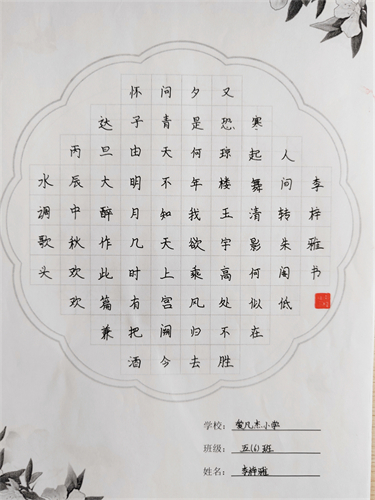 水调歌头
丙辰中秋欢欢
达旦大醉作此篇兼
怀子由明月几时有把酒
问青天不知天上宫阙今
夕是何年我欲乘风归去
又恐琼楼玉宇高处不胜
寒起舞清影何似在
人问转朱阁低
李梓雅书
学校：凡杰小学
班级：五(6)班
姓名：李梓雅